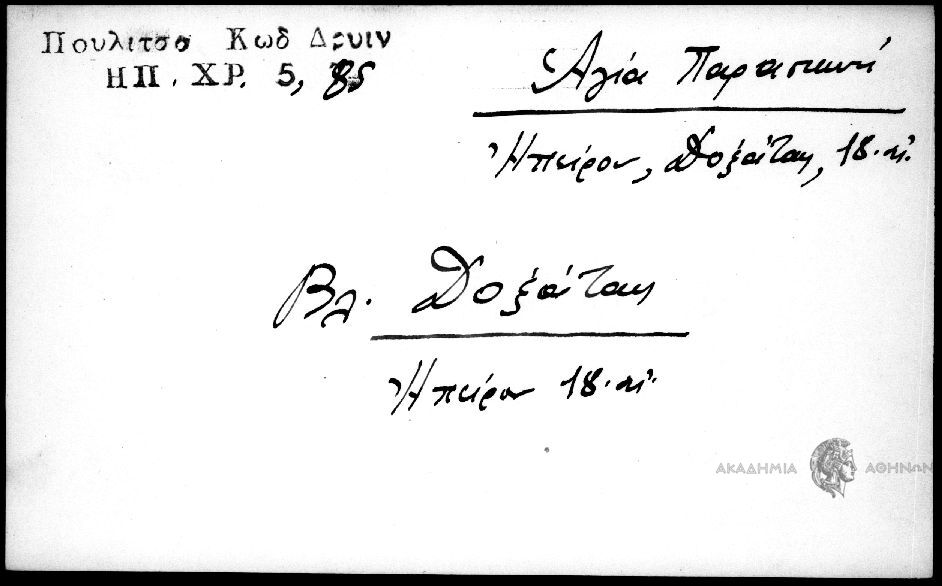 Πουλιτσα Κωδ Δρυιν
ΗΠ. ΧΡ. 5, 85
Ἁγία Παρασκευή
Ἠπείρου, Δοξάτας, 18. αἰ.
Βλ. Δοξάτας
Ἠπείρου 18. αἰ.
ΑΚΑΔΗΜΙΑ ΑΘΗΝΩΝ